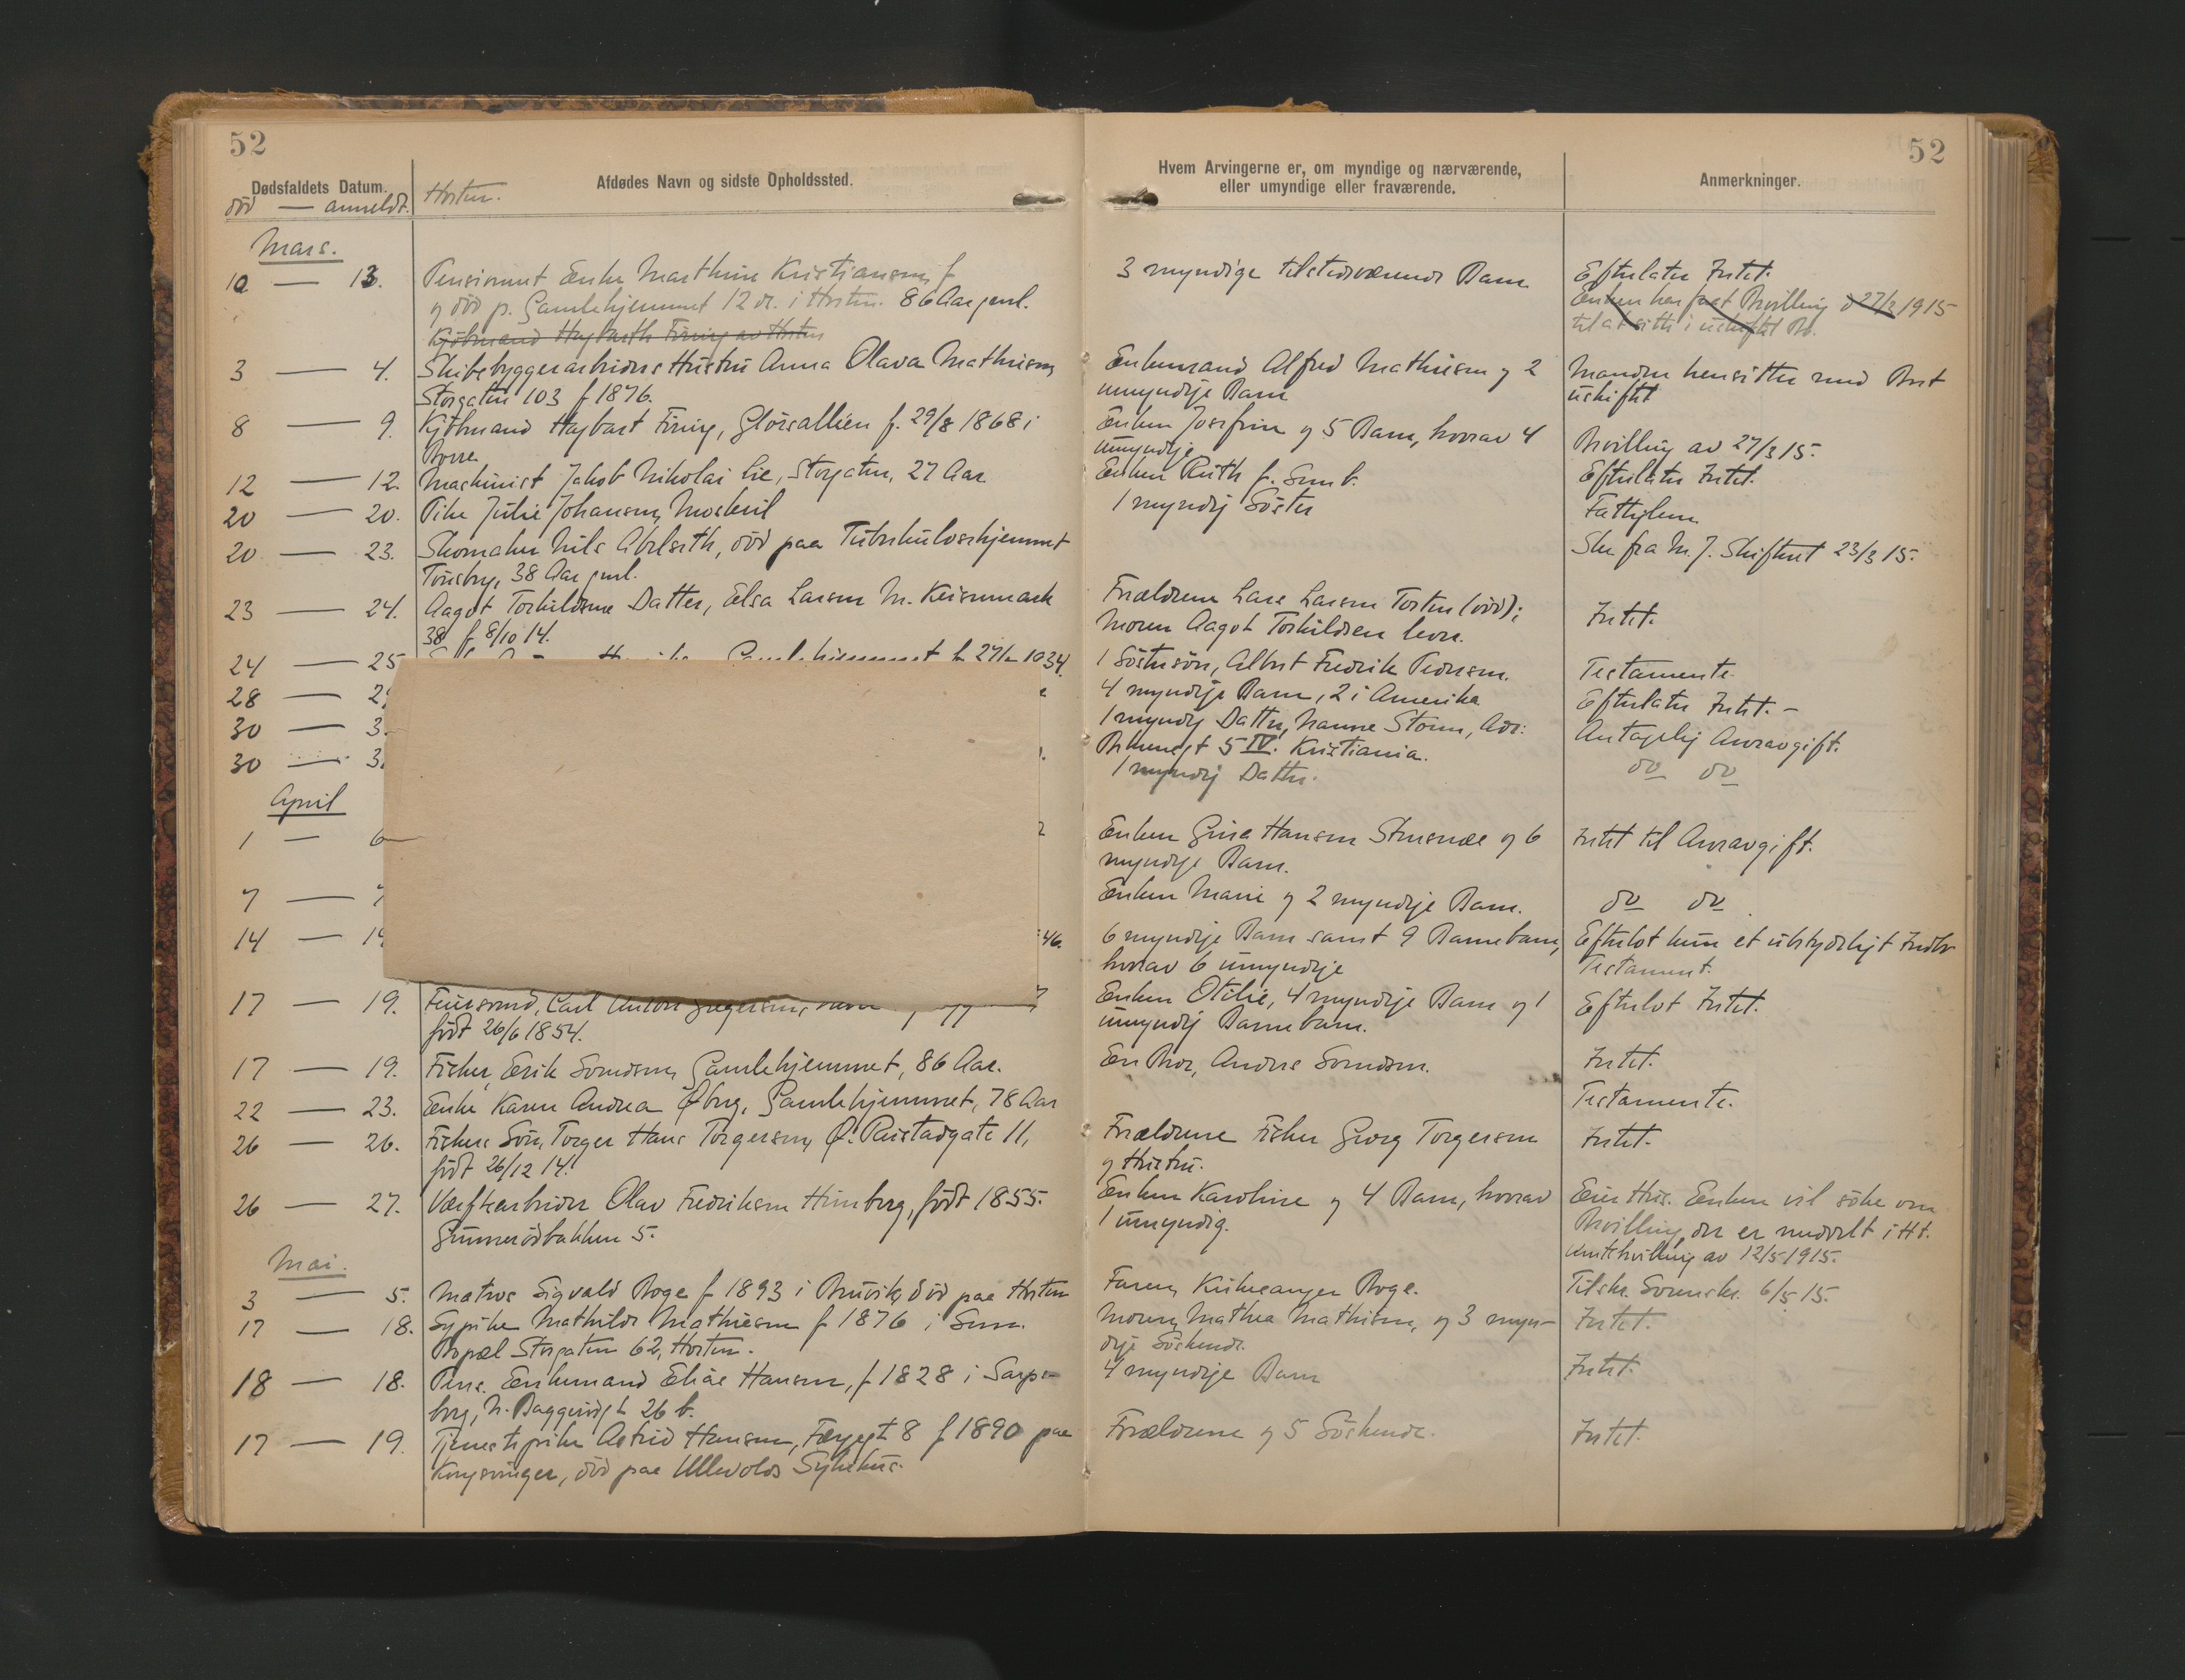 52
52
Dødsfaldets Datum.
død — anmeldt.
Horten.
Afdødes Navn og sidste Opholdssted.
Hvem Arvingerne er, om myndige og nærværende,
eller umyndige eller fraværende.
Anmerkninger.
Mars.
10 — 13. Pensionnert Enke Marthine Kristiansen, f
og död p. Gamlehjemmet 12 ds. i Horten. 86 Aar gml.
3 myndige tilstedeværende Barn
Efterlater Intet.
Enken har faat Bevilling d 27/3 1915
til at sitte i uskiftet Bo.
Kjöbmand Hagbarth Föring av Horten
3 — 4. Skibsbyggerarbeiders Hustru Anna Olava Mathisen,
Storgaten 103 f 1876.
Enkemand Alfred Mathisen og 2
umyndige Barn
Manden hensitter med Boet
uskiftet
8 — 9. Kjöbmand Hagbart Föring, Glörsalléen f. 29/8 1868 i
Borre
Enken Josefine og 5 Barn, hvorav 4
umyndige
Bevilling av 27/3 15.
12 — 12. Maskinist Jakob Nikolai Lie, Storgaten, 27 Aar
Enken Ruth f. Sem b.
Efterlater Intet.
20 — 20. Pike Julie Johansen, Moskvil
1 myndig Söster
Fattiglem
20 — 23. Skomaker Nils Abelseth, död paa Tuberkulosehjemmet
Tönsberg, 38 Aar gml.
Skr fra M. J. Skifteret 23/3 15.
23 — 24. Aagot Torkildsens Datter, Elsa Larsen N. Keisemark
38 f 8/10 14.
Forældrene Lars Larsen Torten (död);
Moren Aagot Torkildsen lever.
Intet.
24 — 25
1 Söstersön, Albert Fredrik Pedersen.
Testamente.
28 — 2
4 myndige Barn, 2 i Amerika
Efterlater Intet. –
30 — 3
1 myndig Datter, Nanne Storm, Adr:
5 IV. Kristiania.
Antagelig Arveavgift.
30 — 3
1 myndig Datter.
do do
April
1 — 6
Enken Gina Hansen og 6
myndige Barn.
Intet til Arveavgift.
7 — 7
Enken Marie og 2 myndige Barn.
do do
14 — 14
46.
6 myndige Barn samt 9 Barnebarn,
hvorav 6 umyndige
Efterlot kun et ubetydeligt Indbo
Testament.
17 — 19. Carl Anton Gregersen,
födt 26/6 1854.
Enken Otilie, 4 myndige Barn og 1
umyndig Barnebarn.
Efterlot Intet.
17 — 19. Fisker, Erik Svendsen, Gamlehjemmet, 86 Aar.
En Bror, Anders Svendsen.
Intet.
22 — 23. Enke Karen Andrea Øberg, Gamlehjemmet, 78 Aar
Testamente.
26 — 26. Fiskers Sön, Torger Hans Torgersen, Ø. Rustadgate 11,
födt 26/12 14.
Forældrene Fisker Georg Torgersen
og Hustru.
Intet.
26 — 27. Værftsarbeider Olav Fredriksen Himberg, födt 1855.
Gunnerödbakken 5.
Enken Karoline og 4 Barn, hvorav
1 umyndig.
Eier Hus. Enken vil söke om
Bevilling, der er meddelt i Ht.
Amtsbevilling av 12/5 1915.
Mai.
3 — 5. Matros Sigvald Boge f 1893 i Bruvik, död paa Horten
Faren, Kirkesanger Boge.
Tilskr. Sorenskr. 6/5 15.
17 — 18. Sypike Mathilde Mathisen f 1876 i Sem.
Bopæl Storgaten 62, Horten.
Moren, Mathea Mathisen, og 3 myn-
dige Söskende.
Intet.
18 — 18. Pens. Enkemand Elias Hansen, f 1828 i Sarps-
borg, N. Baggerödgt 26 b.
4 myndige Barn
Intet.
17 — 19. Tjenestepike Astrid Hansen, Færgegt 8 f 1890 paa
Kongsvinger, död paa Ullevolds Sykehus.
Forældrene og 5 Söskende.
Intet.